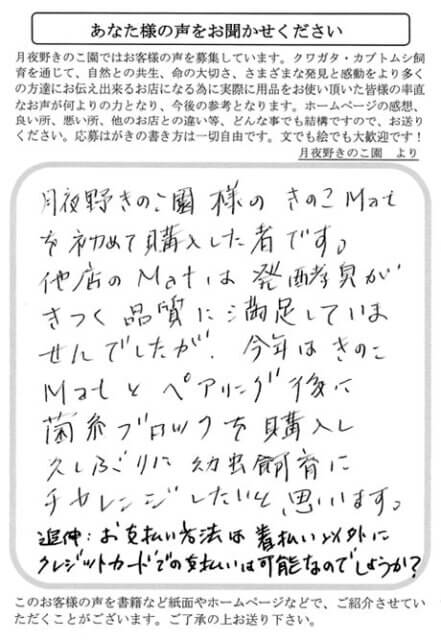 あなた様の声をお聞かせください
月夜野きのこ園ではお客様の声を募集しています。クワガタ・カブトムシ飼
育を通じて、自然との共生、命の大切さ、さまざまな発見と感動をより多く
の方達にお伝え出来るお店になる為に実際に用品をお使い頂いた皆様の率直
なお声が何よりの力となり、今後の参考となります。ホームページの感想、
良い所、悪い所、他のお店との違い等、どんな事でも結構ですので、お送り
ください。応募はがきの書き方は一切自由です。文でも絵でも大歓迎です！
月夜野きのこ園　より
月夜野きのこ園 様の きのこMat
を初めて購入した者です。
他店のMatは発酵臭が
きつく品質に満足していま
せんでしたが、今年はきのこ
Matとペアリング後に
菌糸ブロックを購入し
久しぶりに幼虫飼育に
チャレンジしたいと思います。
追伸：お支払い方法は着払い以外に
クレジットカードでの支払いは可能なのでしょうか？
このお客様の声を書籍など紙面やホームページなどで、ご紹介させてい
ただくことがございます。ご了承の上お送り下さい。